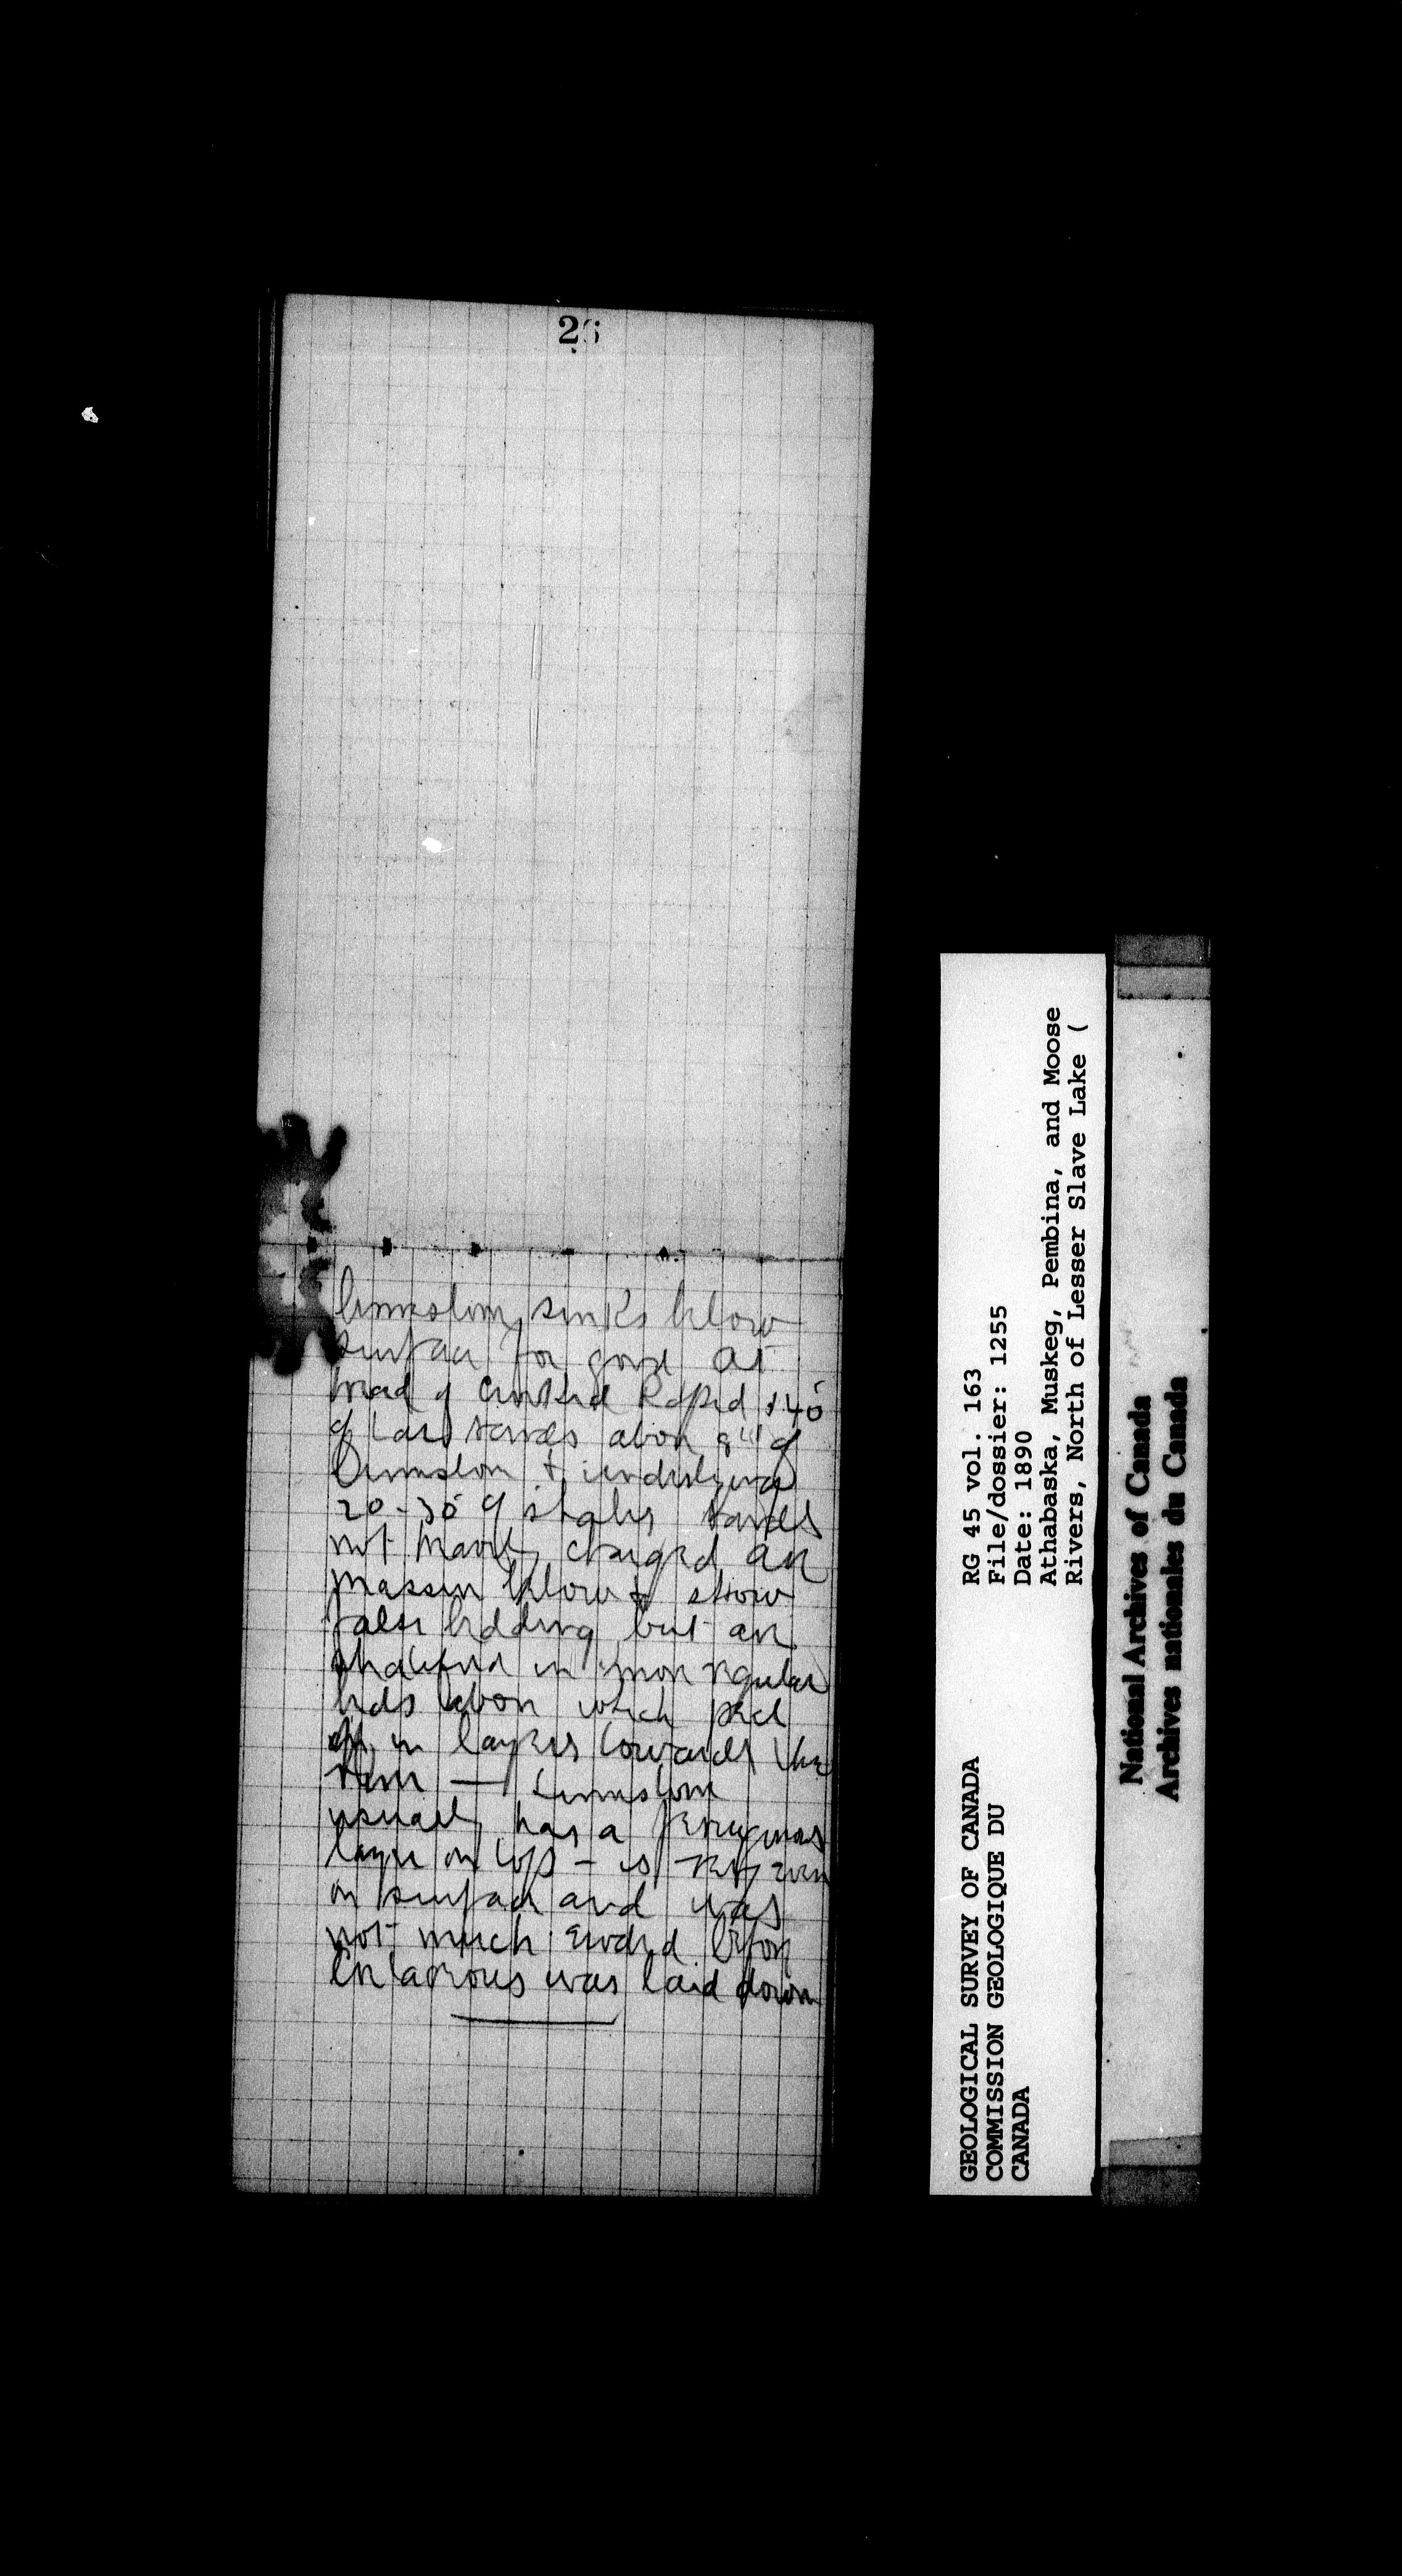 26
limestone sinks below
surface for good at
head of Crooked Rapid 140'
of tar sands above 8" of
limestone & underlying
20-30' of shales sands
not heavily charged are
massive below & show
false bedding but are
stratified in more regular
beds above which peel
off in layers towards the
river — Limestone
usually has a ferruginous
layer on top - is very even
on surface and was
not much eroded before
Cretaceous was laid down
GEOLOGICAL SURVEY OF CANADA
COMMISSION GEOLOGIQUE DU
CANADA
RG 45 vol. 163
File/dossier: 1255
Date: 1890
Athabaska, Muskeg, Pembina, and Moose
Rivers, North of Lesser Slave Lake (
National Archives of Canada
Archives nationales du Canada